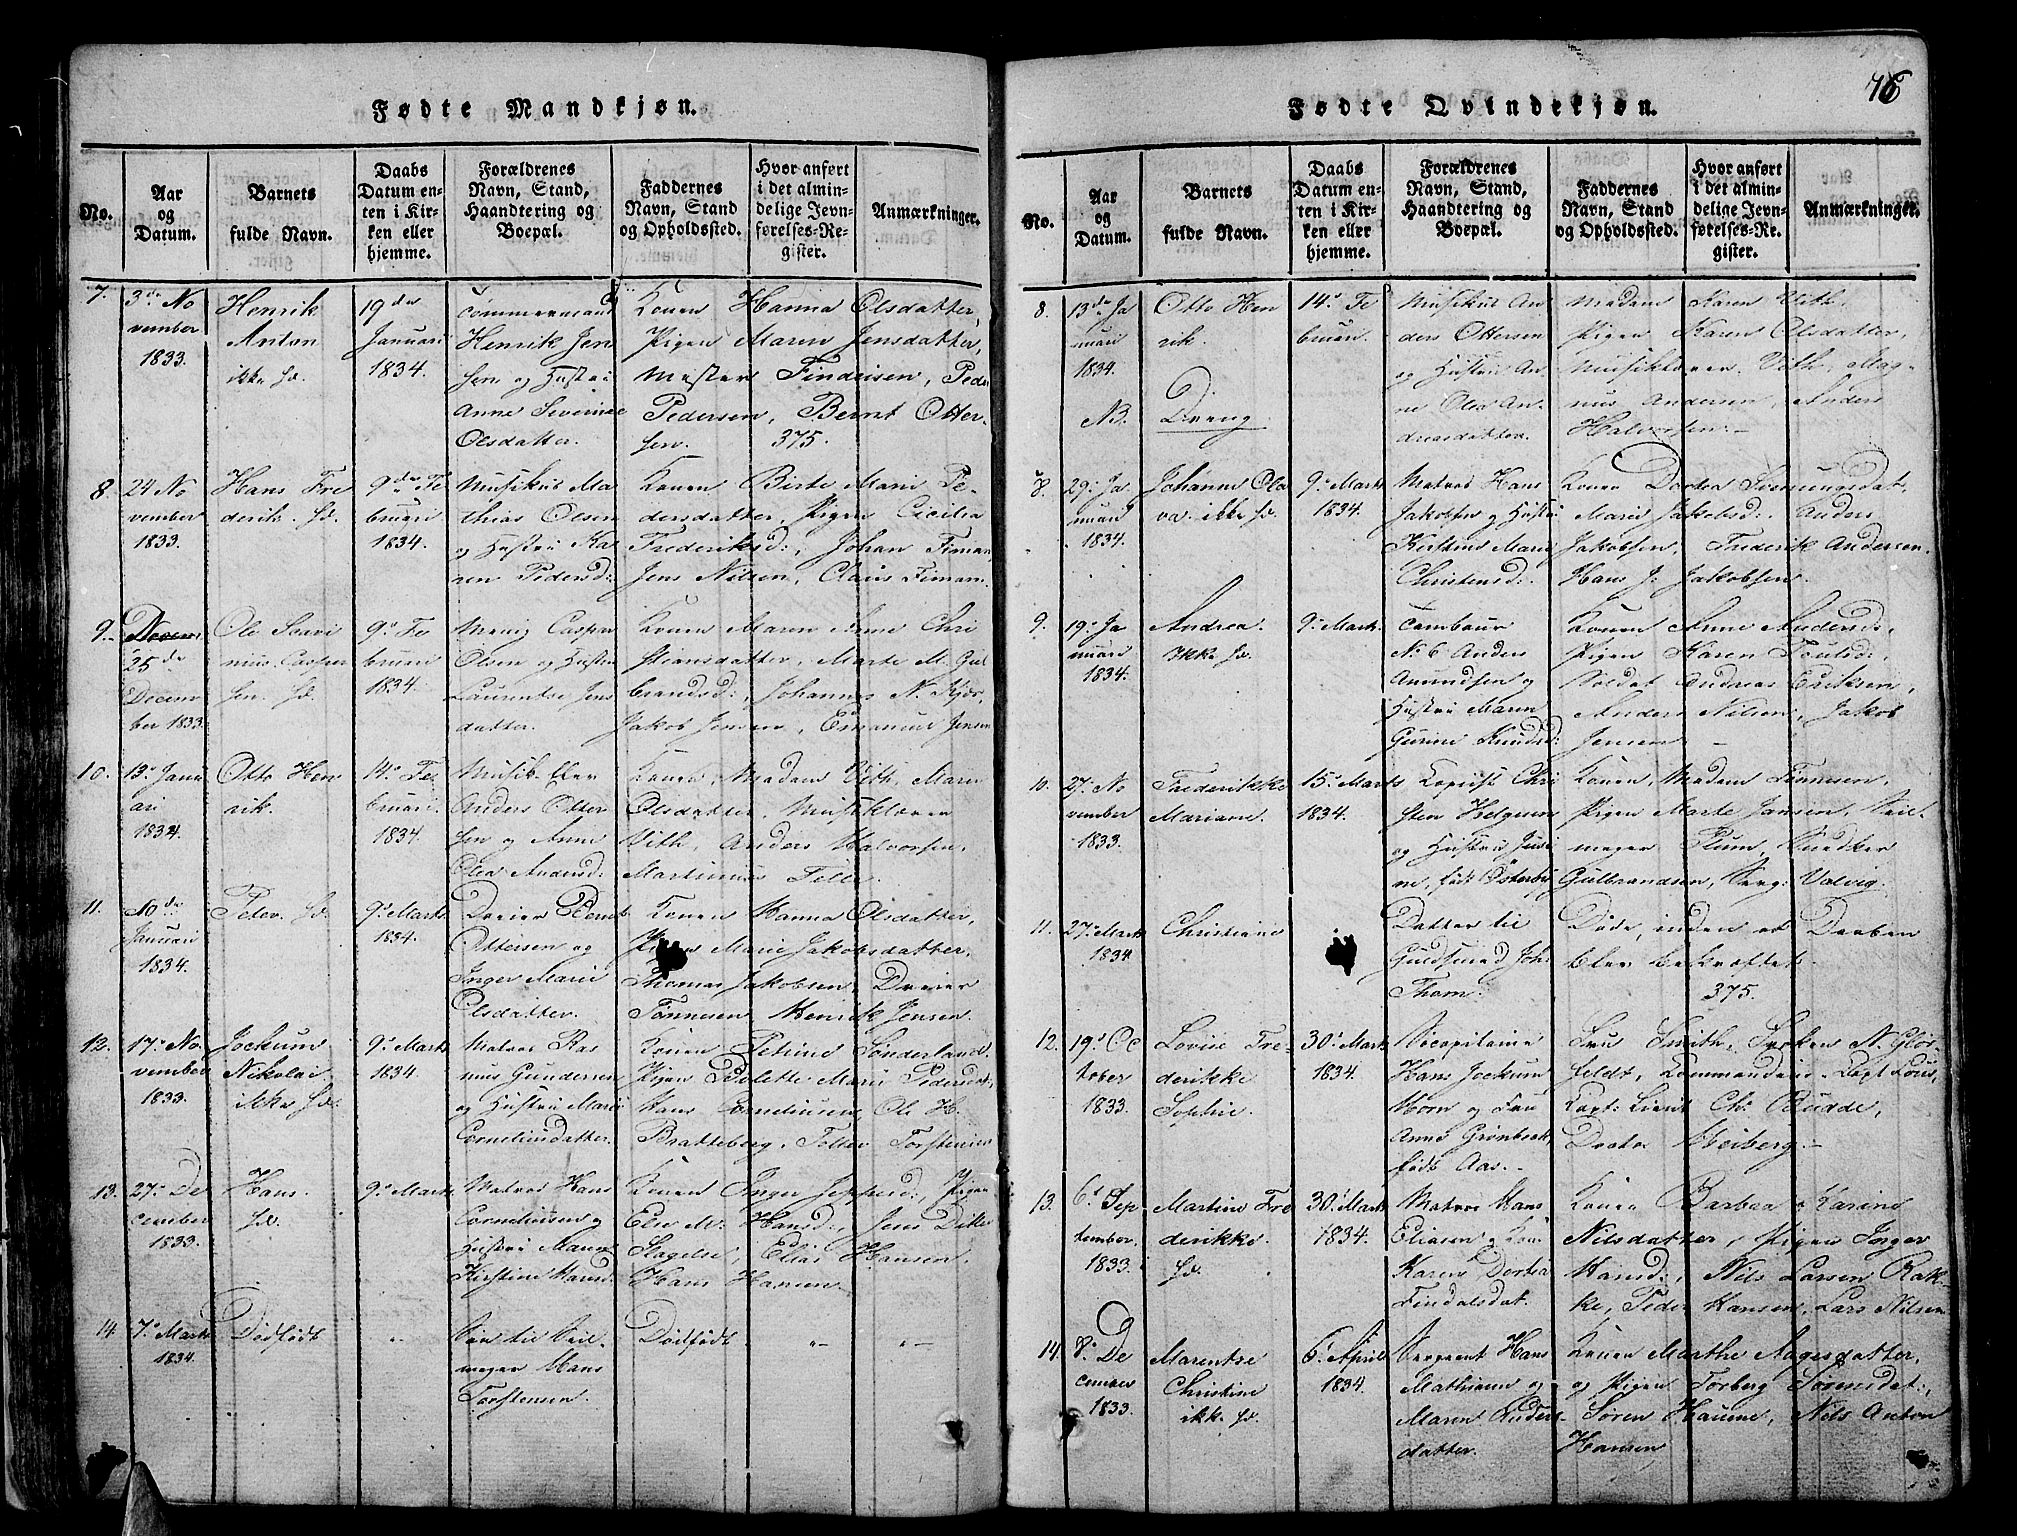 Fødte Mandkjøn.
No.
Aar
og
Datum.
Barnets
fulde Navn.
Daabs
Datum en-
ten i Kir-
ken eller
hjemme.
Forældrenes
Navn, Stand,
Haandtering og
Boepæl.
Faddernes
Navn, Stand
og Opholdssted.
Hvor anført
i det almin-
delige Jevn-
førelses-Re-
gister.
Anmærkninger.
7.
3de No
vember
1833.
Henrik
Anton
ikke hd.
19de
Januari
1834.
Tømmermand
Henrik Jen
sen og Hustru
Anne Severine
Olsdatter.
Konen Hanna Olsdatter,
Pigen Maren Jensdatter,
Mester Findeisen, Peder
Pedersen, Bernt Otter-
sen. 375.
8.
24 No
vember
1833.
Hans Fre
derik. hd.
9de Fe
bruari
1834.
Musikus Ma
thias Olsen
og Hustru Ka
ren Pedersd:
Konen Birte Marie Pe-
dersdatter, Pigen Cicilia
Frederiksd:, Johan Timan,
Jens Nilsen, Claus Timan.
9.
Novem
25de
Decem
ber 1833.
Ole
Casper
sen. hd.
9d Fe
bruari
1834.
Casper
Olsen og Hustru
Laurentse Jens
datter.
Konen Maren Anne Chri
stiansdatter, Marte M. Gul
brandsd:, Johannes N. Kjør,
Jakob Jensen, Emanuel Jensen
10.
13d Janu
ari
1834.
Otto Hen
rik.
14d Fe
bruari
1834.
Musik Elev
Anders Otter
sen og Anne
Olea Andersd:
Konen, Madam Vith, Maren
Olsdatter, Musiklærer
Vith, Anders Halvorsen,
Martinus Tellef
11.
Januari
1834.
Peter hd.
9d Marts
1834.
Dreier Bernt
Ottersen og
Inger Marie
Olsdatter.
Konen Hanna Olsdatter,
Pigen Marie Jakobsdatter,
Thomas Jakobsen, Dreier
Tønnesen Henrik Jensen.
12.
17d No
vember
1833.
Jockum
Nikolai
ikke hd.
9d Marts
1834.
Matros Ras
mus Gundersen
og Hustru Marie
Corneliusdatter.
Konen Petrine Sønderland
Pigen Bolette Marie Pedersdt,
Hans Corneliusen, Ole H.
Bratteberg, Tollev Torstensen
13.
27d De
cember
1833.
Hans.
hd.
9d Marts
Matros Hans
Corneliusen og
Hustru Maren
Kirstine Hansd.
Konen Inger Jeppesd:, Pigen
Else M. Hansd:, Jens Dike
Slagelse, Elias Hansen,
Hans Hansen
14
7d Marts
1834.
Dødfødt
"
Søn til Veil-
meyer Hans
Torstensen.
Dødfødt
"
"
76
Fødte Qvindekjøn.
No.
Aar
og
Datum.
Barnets
fulde Navn.
Daabs
Datum en-
ten i Kir-
ken eller
hjemme.
Forældrenes
Navn, Stand,
Haandtering og
Boepæl.
Faddernes
Navn, Stand
og Opholdssted.
Hvor anført
i det almin-
delige Jevn-
førelses-Re-
gister.
Anmærkninger.
8.
13de Ja
nuari
1834.
NB.
Otto Hen
rik.
Dreng
14d Fe
bruari.
Musikus An
ders Ottersen
og Hustru An
ne Olea An-
dreasdatter.
Madam Karen Vith,
Pigen Karen Olsdatter,
Musiklærer Vith, Mag-
nus Andersen, Anders
Halvorsen.
8.
29d Ja
nuari
1834.
Johanne Ola
va. ikke hd.
9d Marts
1834.
Matros Hans
Jakobsen og Hustru
Kirstine Marie
Christensd:
Konen Dorthea Svenungsdat,
Marie Jakobsd: Anders
Jakobsen, Frederik Andersen.
Hans J: Jakobsen.
9.
19d Ja
nuari
1834.
Andrea.
Ikke hd.
9d Marts.
Tambour
No 6 Anders
Amundsen og
Hustru Maren
Gurine Knudsd:
Konen Anne Andersd:,
Pigen Karen
Soldat Andreas Eriksen,
Anders Nilsen, Jakob
Jensen
10.
27d No
vember
1833.
Frederikke
Mariane.
15d Marts
1834.
Kopiist Chri
sten Helgesen
og Hustru Jusi
ne, født Østerby
Konen, Madam Tønnesen,
Pigen Marte Jansen, Veil-
meyer Plum,
Gulbrandsen, Serg: Valvig:
11.
27d Marts
1834
Christiane
Datter til
Guldsmed Joh:
Thom:
Døde, inden at Daaben
blev bekræftet.
375.
12.
19d Oc
tober
1833.
Lovise Fre-
derikke
Sophie.
30d Marts
1834.
Hans Jockum
Horn og Frue
Anne Grønbeck,
født Aas.
Fru Smith, N. Glør
feldt, Kommandeur Capt:
Capt: Lieut Ch: Budde,
Meiberg.
13.
6d Sep
tember.
1833.
Martine Fre
derikke.
hd.
30d Marts
1834.
Matros Hans
Eliasen og Kone
Karen Dorthea
Findalsdat.
Konen Barbra Karine
Nilsdatter, Pigen Inger
Hansd:, Nils Larsen Bak-
ke, Peder Hansen, Lars Nilsen
14.
8d De
cember
1833.
Marentse
Christine
ikke hd.
6d April
1834.
Sergeant Hans
Mathiasen og
Maren Anders
datter.
Konen Marthe Aagesdatter,
og Pigen Torberg Sørensdat:,
Søren Haume, Nils Anton
Hansen